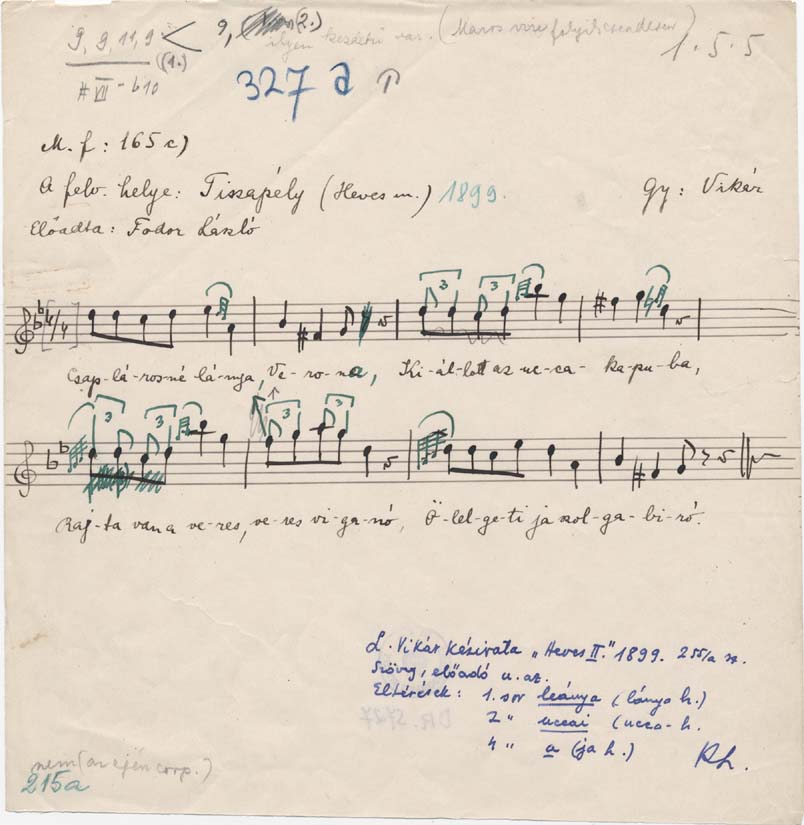 9, 9, 11, 9 < 9, (2.) ilyen kezdetű var. (Maros vize folyik csendesen)
(1.)
# VII - b10
1. 5. 5
327 a
M. f: 165 c)
A felv. helye: Tiszapély (Heves m.) 1899. Gy: Vikár
Előadta: Fodor László
4/4 3 3
Csap-lá-rosné lá-nya, Ve-ro-na, Ki-ál-lott az uc-ca- ka-pu-ba,
3 3 3 3
Raj-ta van a ve-res, ve-res vi-ga-nó, Ö-lel-ge-ti ja szol-ga-bi-ró.
L. Vikár kézirata „Heves II." 1899. 255/a sz.
Szöveg, előadó u. az.
Eltérések: 1. sor leánya (lánya h.)
2 " uccai (ucca- h.
4 " a (ja h.)
Rh.
nem (az egén corp.)
215a